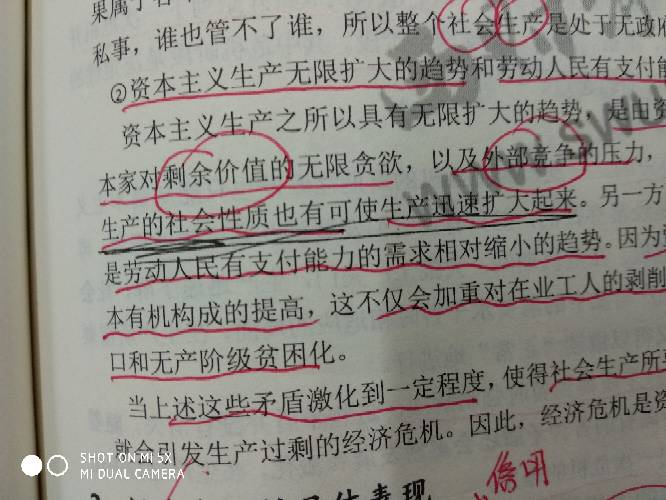 私事，谁也管不了谁，所以整个社会生产是处于无政府
②资本主义生产无限扩大的趋势和劳动人民有支付能
资本主义生产之所以具有无限扩大的趋势，是由资
本家对剩余价值的无限贪欲，以及外部竞争的压力，
生产的社会性质也有可使生产迅速扩大起来。另一方
是劳动人民有支付能力的需求相对缩小的趋势。因为
本有机构成的提高，这不仅会加重对在业工人的剥削
口和无产阶级贫困化。
当上述这些矛盾激化到一定程度，使得社会生产所
就会引发生产过剩的经济危机。因此，经济危机是资
体表现
SHOT ON MI 5X
MI DUAL CAMERA